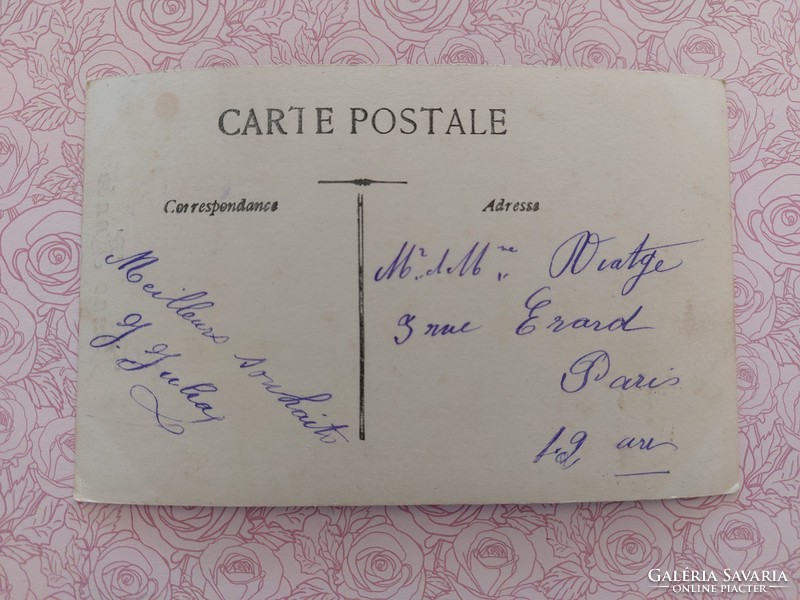 CARTE POSTALE
Correspondance
Meilleurs souhaits
Adresse
Mr. & Mme
3 rue Erard
Paris
12 arr
GALÉRIA SAVARIA
ONLINE PIACTÉR